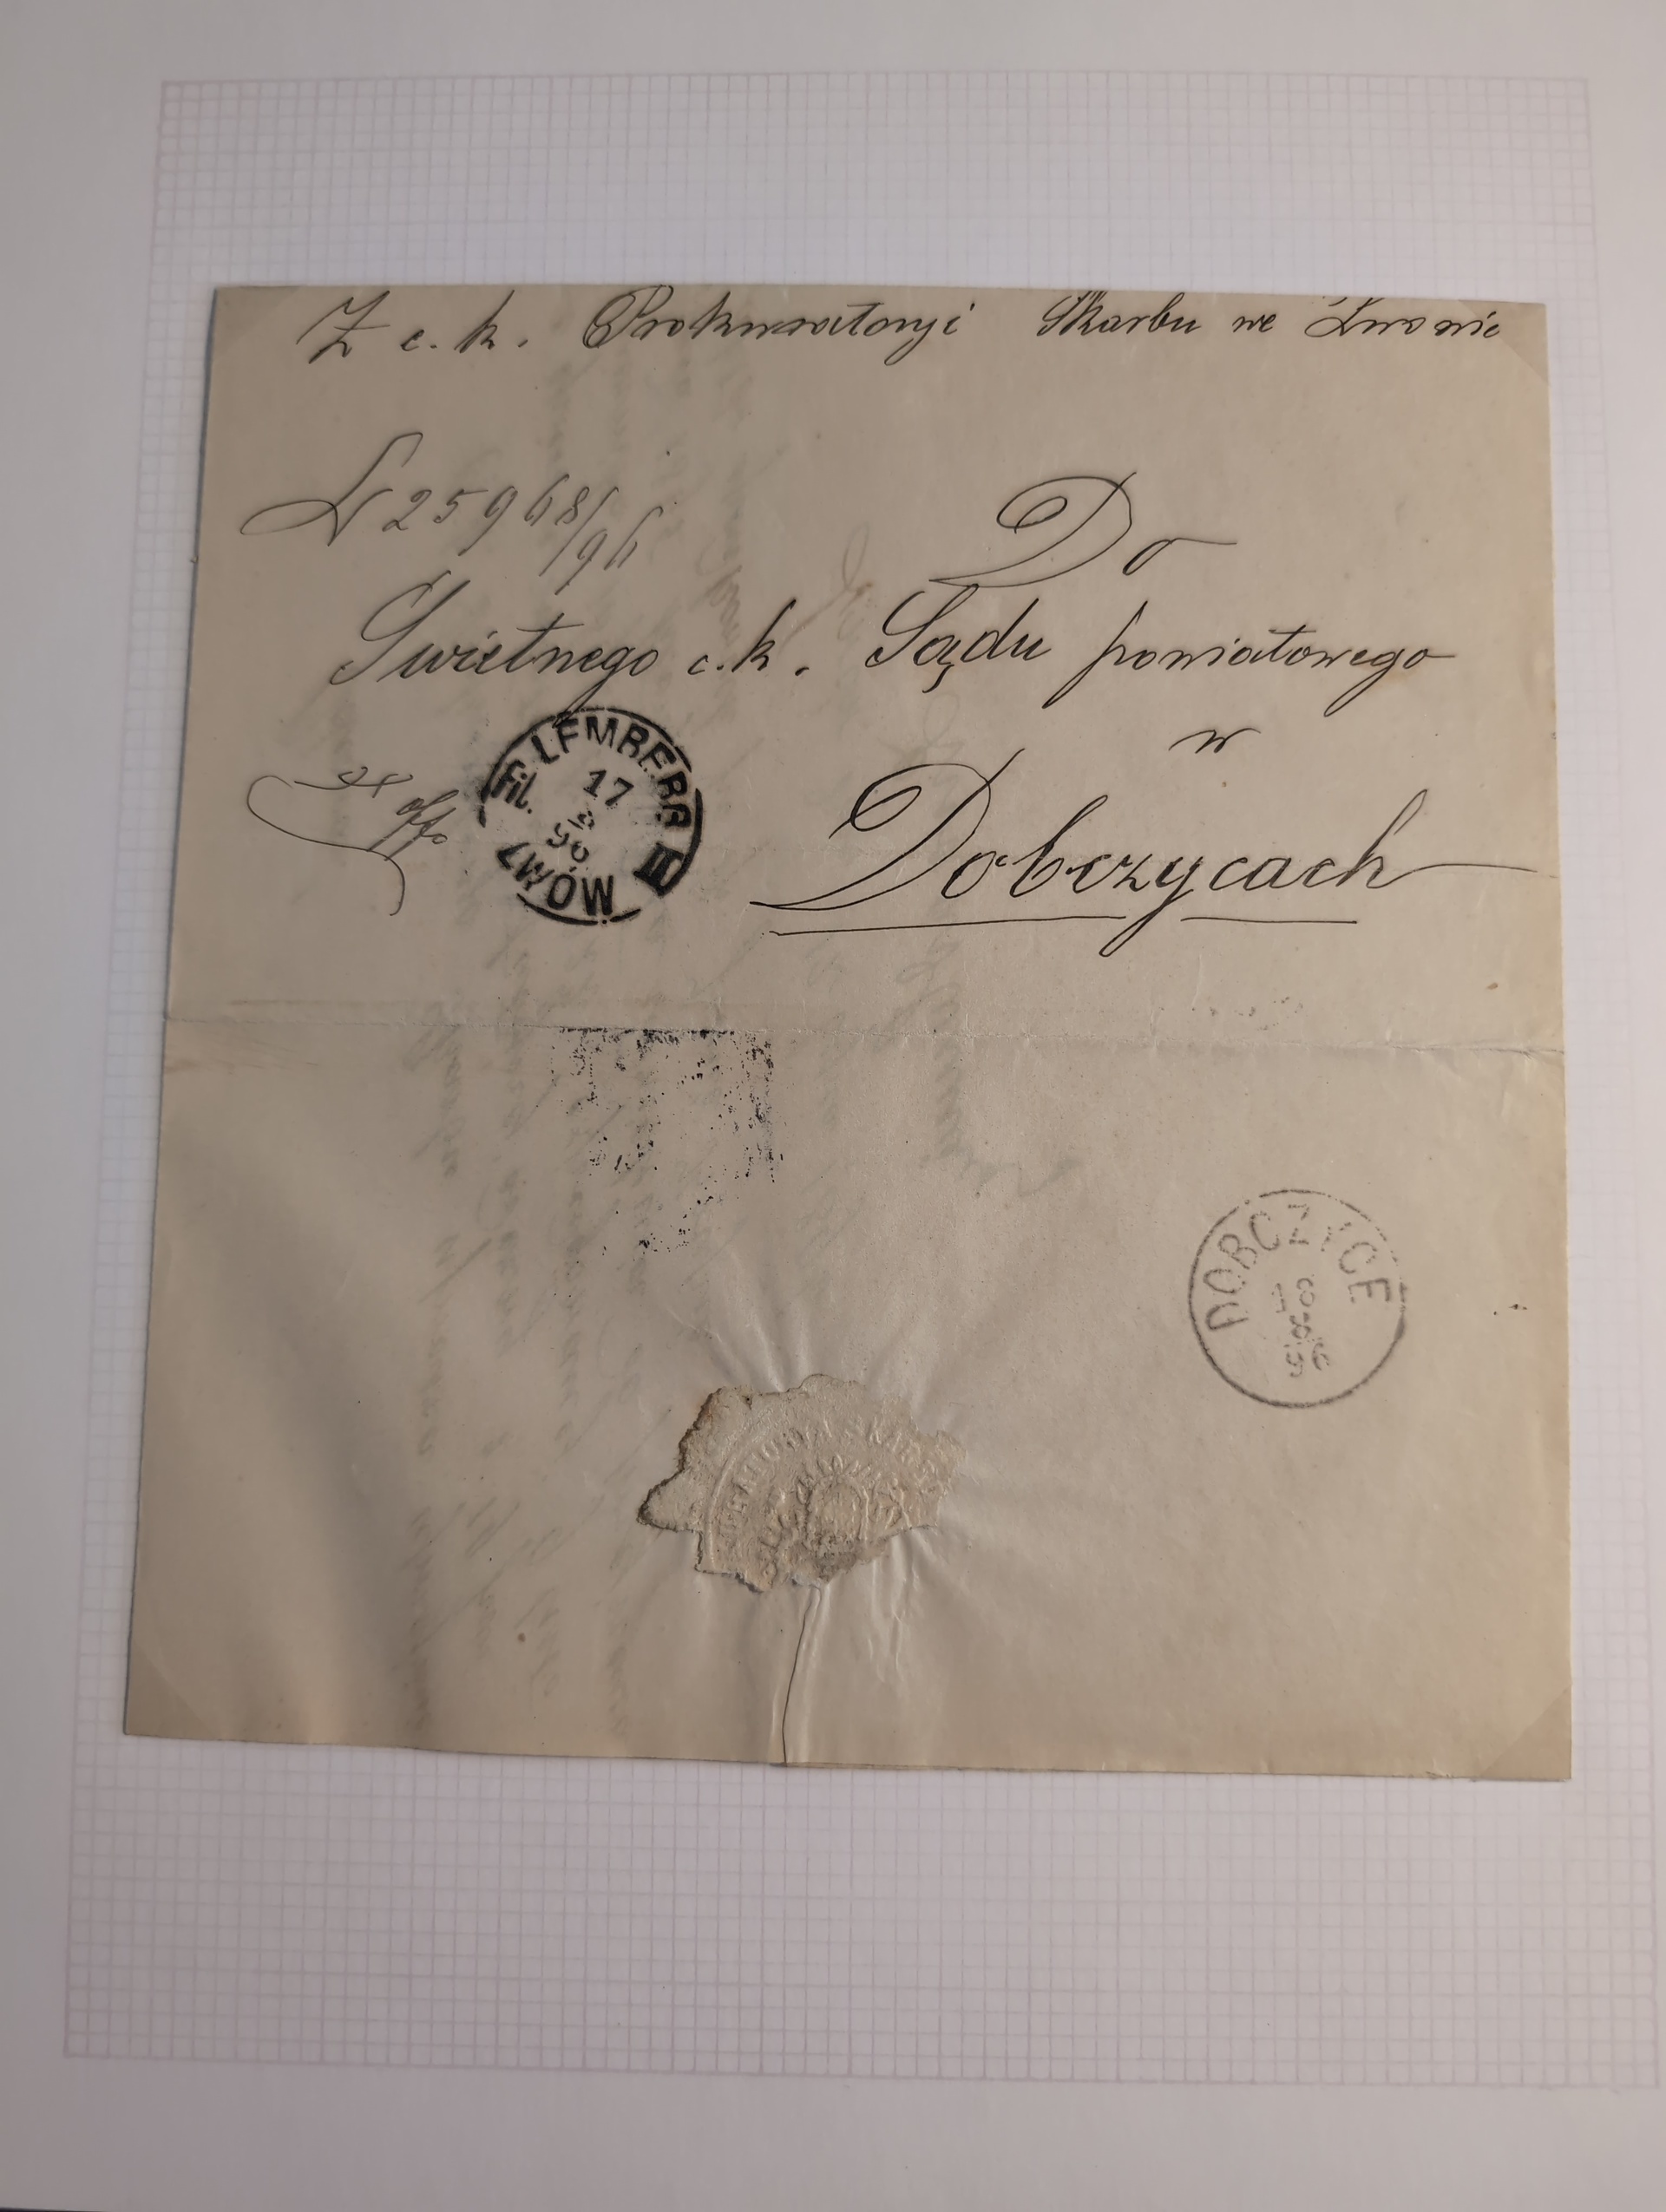 Z c. k. Prokuratoryi Skarbu we Lwowie
L 25968/96
Do
Swietnego c. k. Sądu powiatowego
w
Dobczycach
ex offo
LEMBERG III
Fil.
17
96
LWÓW
DOBCZYCE
18
8
96